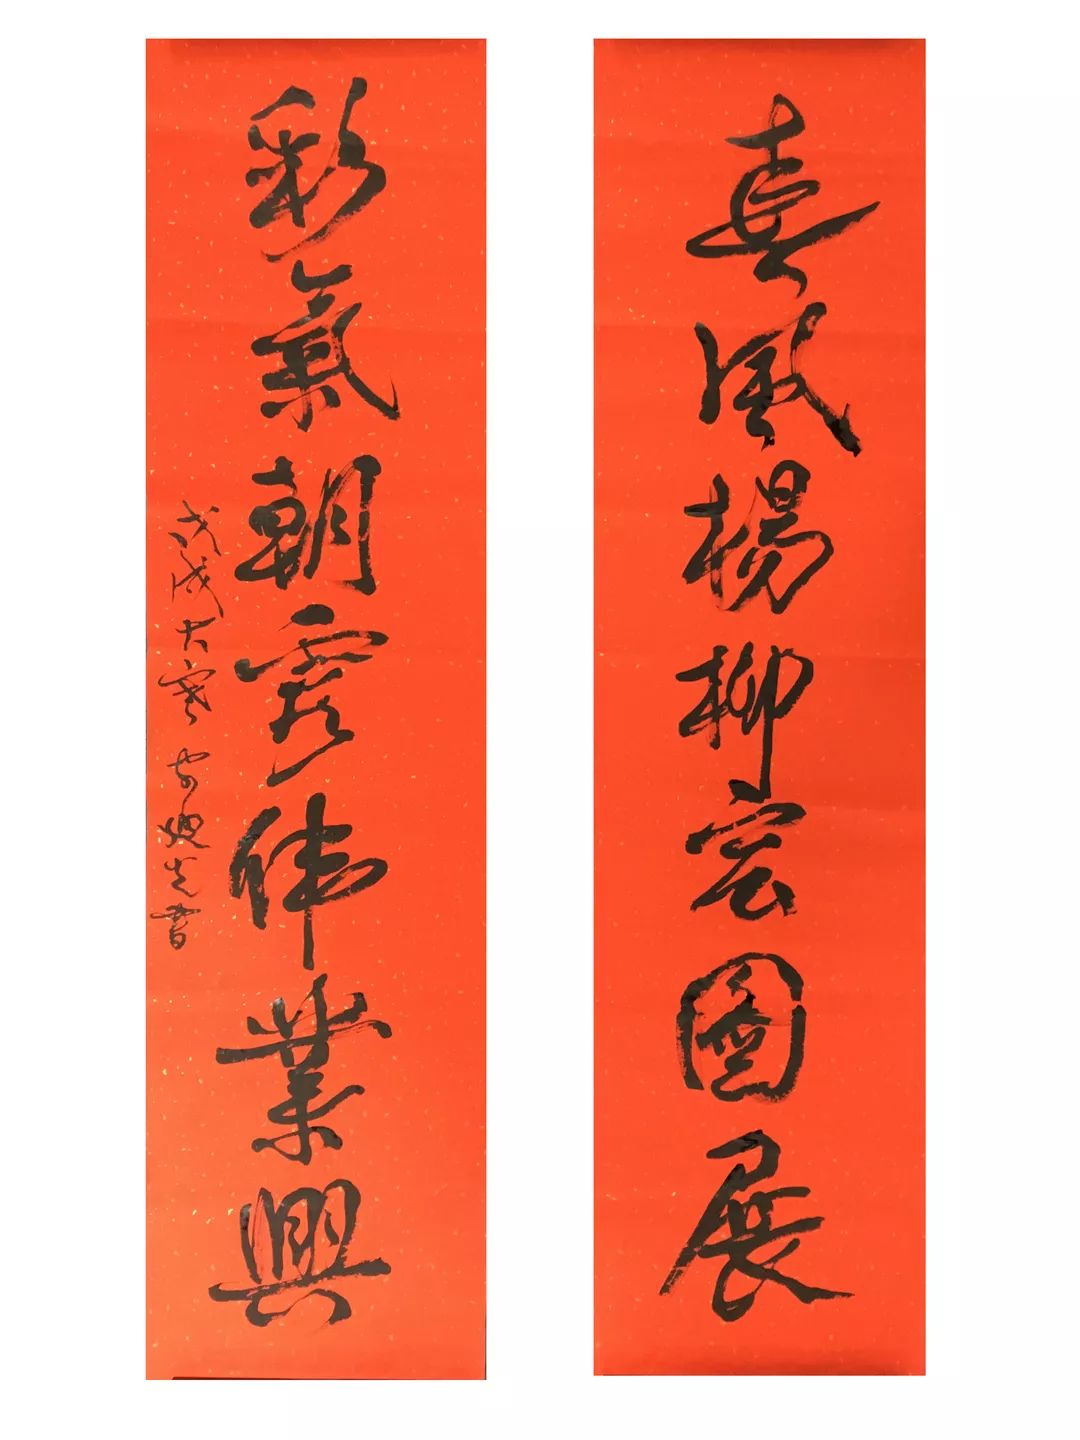 春風楊柳宏圖展
彩氣朝霞伟業興
戊戌大寒書